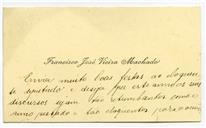 Francisco José Vieira Machado
Envia muito boas festas ao eloquen-
te deputado e deseja que este anno os seus
discursos sejam tão retumbantes como o
anno passado e tão eloquentes para o